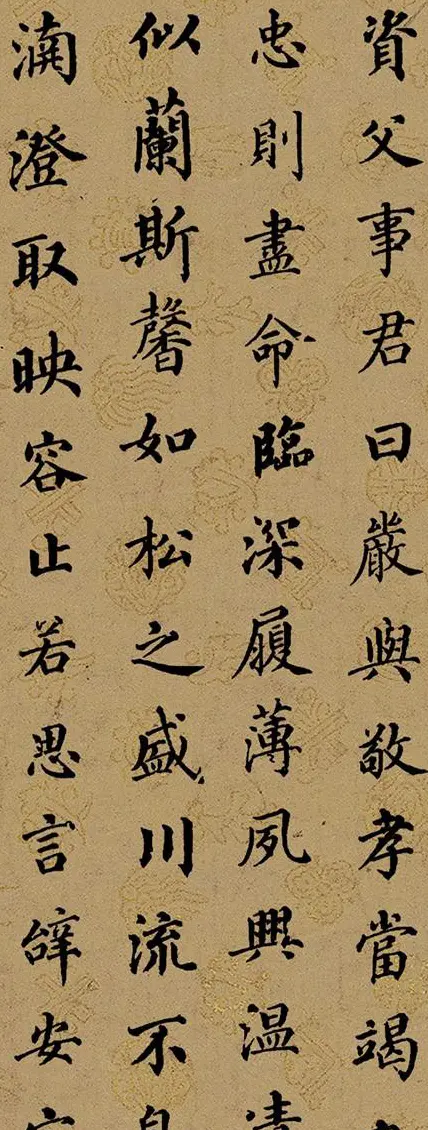 資父事君曰嚴與敬孝當竭
忠則盡命臨深履薄夙興温
似蘭斯馨如松之盛川流不
淵澄取映容止若思言辭安